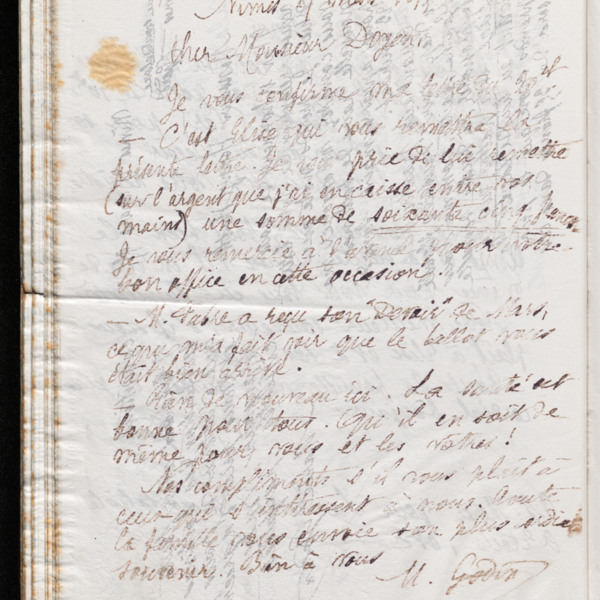 Nimes
cher Monsieur Doyen
Je vous confirme ma lettre du
— C'est Elise qui vous remettra la
présente lettre. Je vous prie de lui remettre
(sur l'argent que j'ai en caisse entre vos
mains) une somme de soixante cinq francs
Je vous remercie à l'avance pour votre
bon office en cette occasion.
— M. Fabre a reçu son "Devoir" de Mars,
ce qui m'a fait voir que le ballot vous
était bien arrivé.
— Rien de nouveau ici. La santé est
bonne pour tous. Qu'il en soit de
même pour vous et les vôtres!
Nos compliments s'il vous plait à
ceux qui s'intéressent à nous. Toute
la famille vous envoie son plus
souvenir. Bien à vous
M. Godin